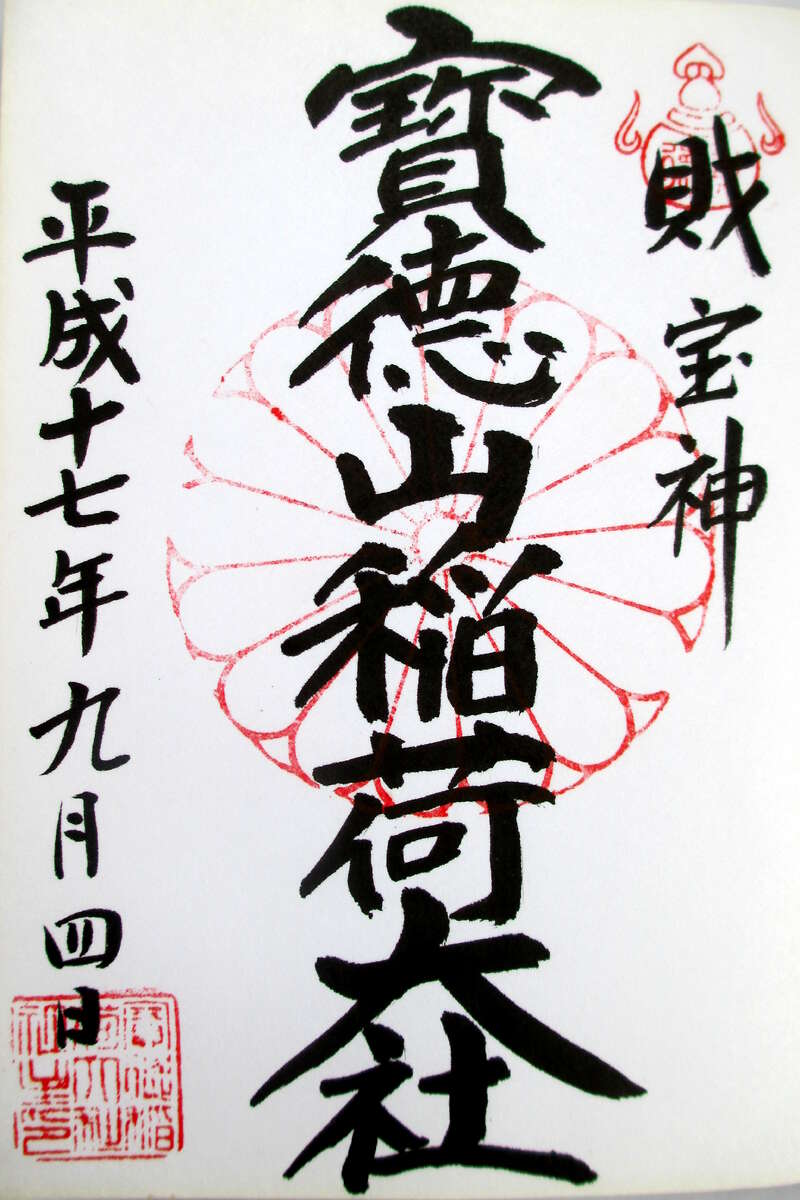 財宝神
寶德山稲荷大社
平成十七年九月四日